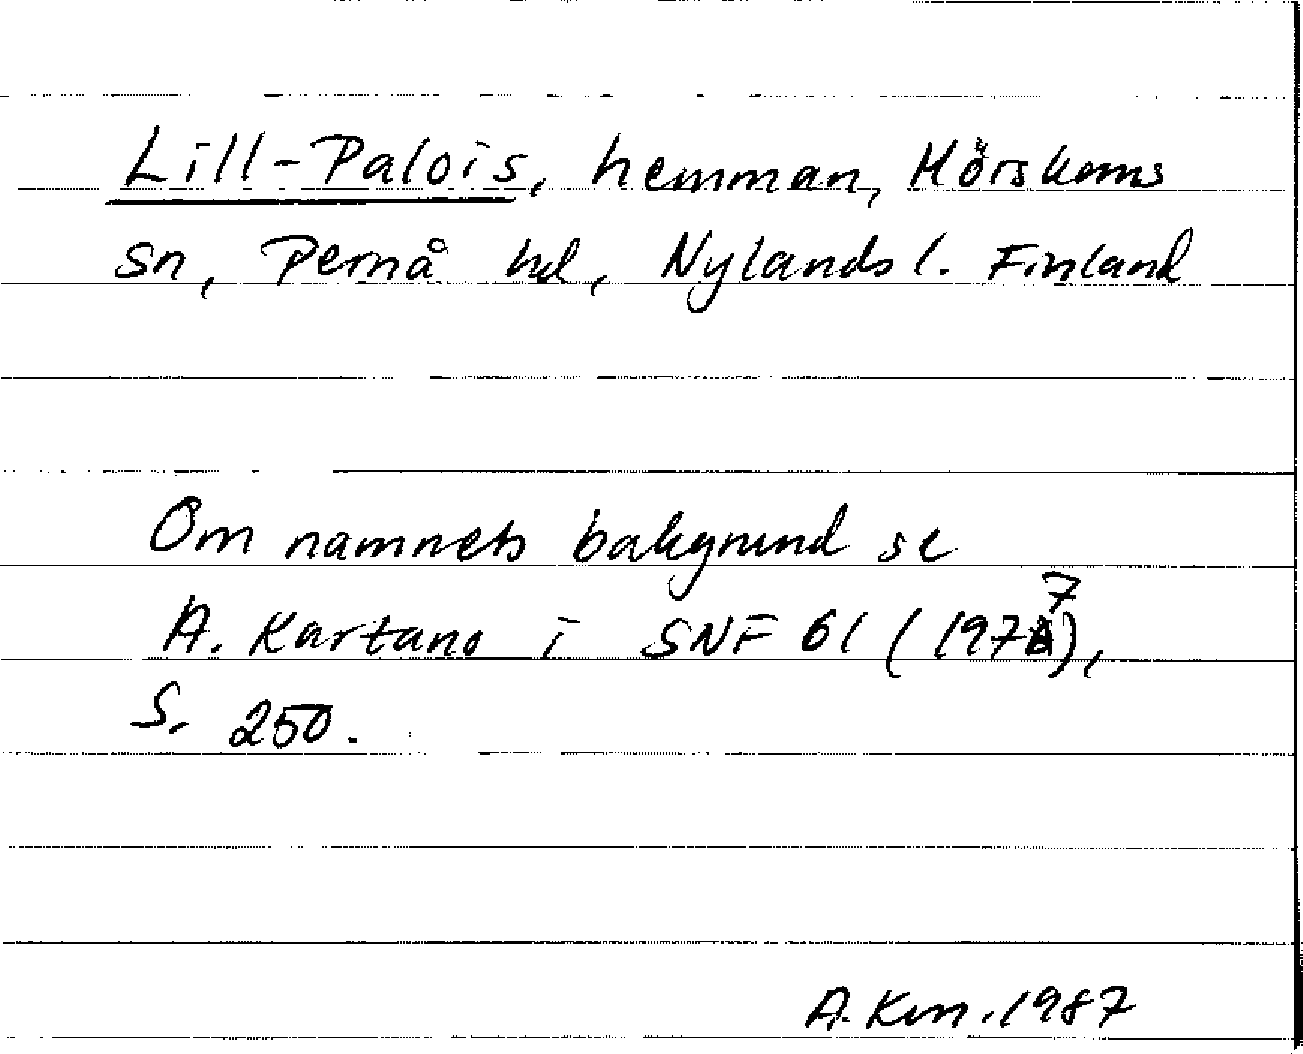 Lill-Palois, hemman, Mörskoms
sn, Pernå hd, Nylands l. Finland
Om namnets bakgrund se
A. Kartano i SNF 61 (1977),
S. 250.
A. Krn. 1987